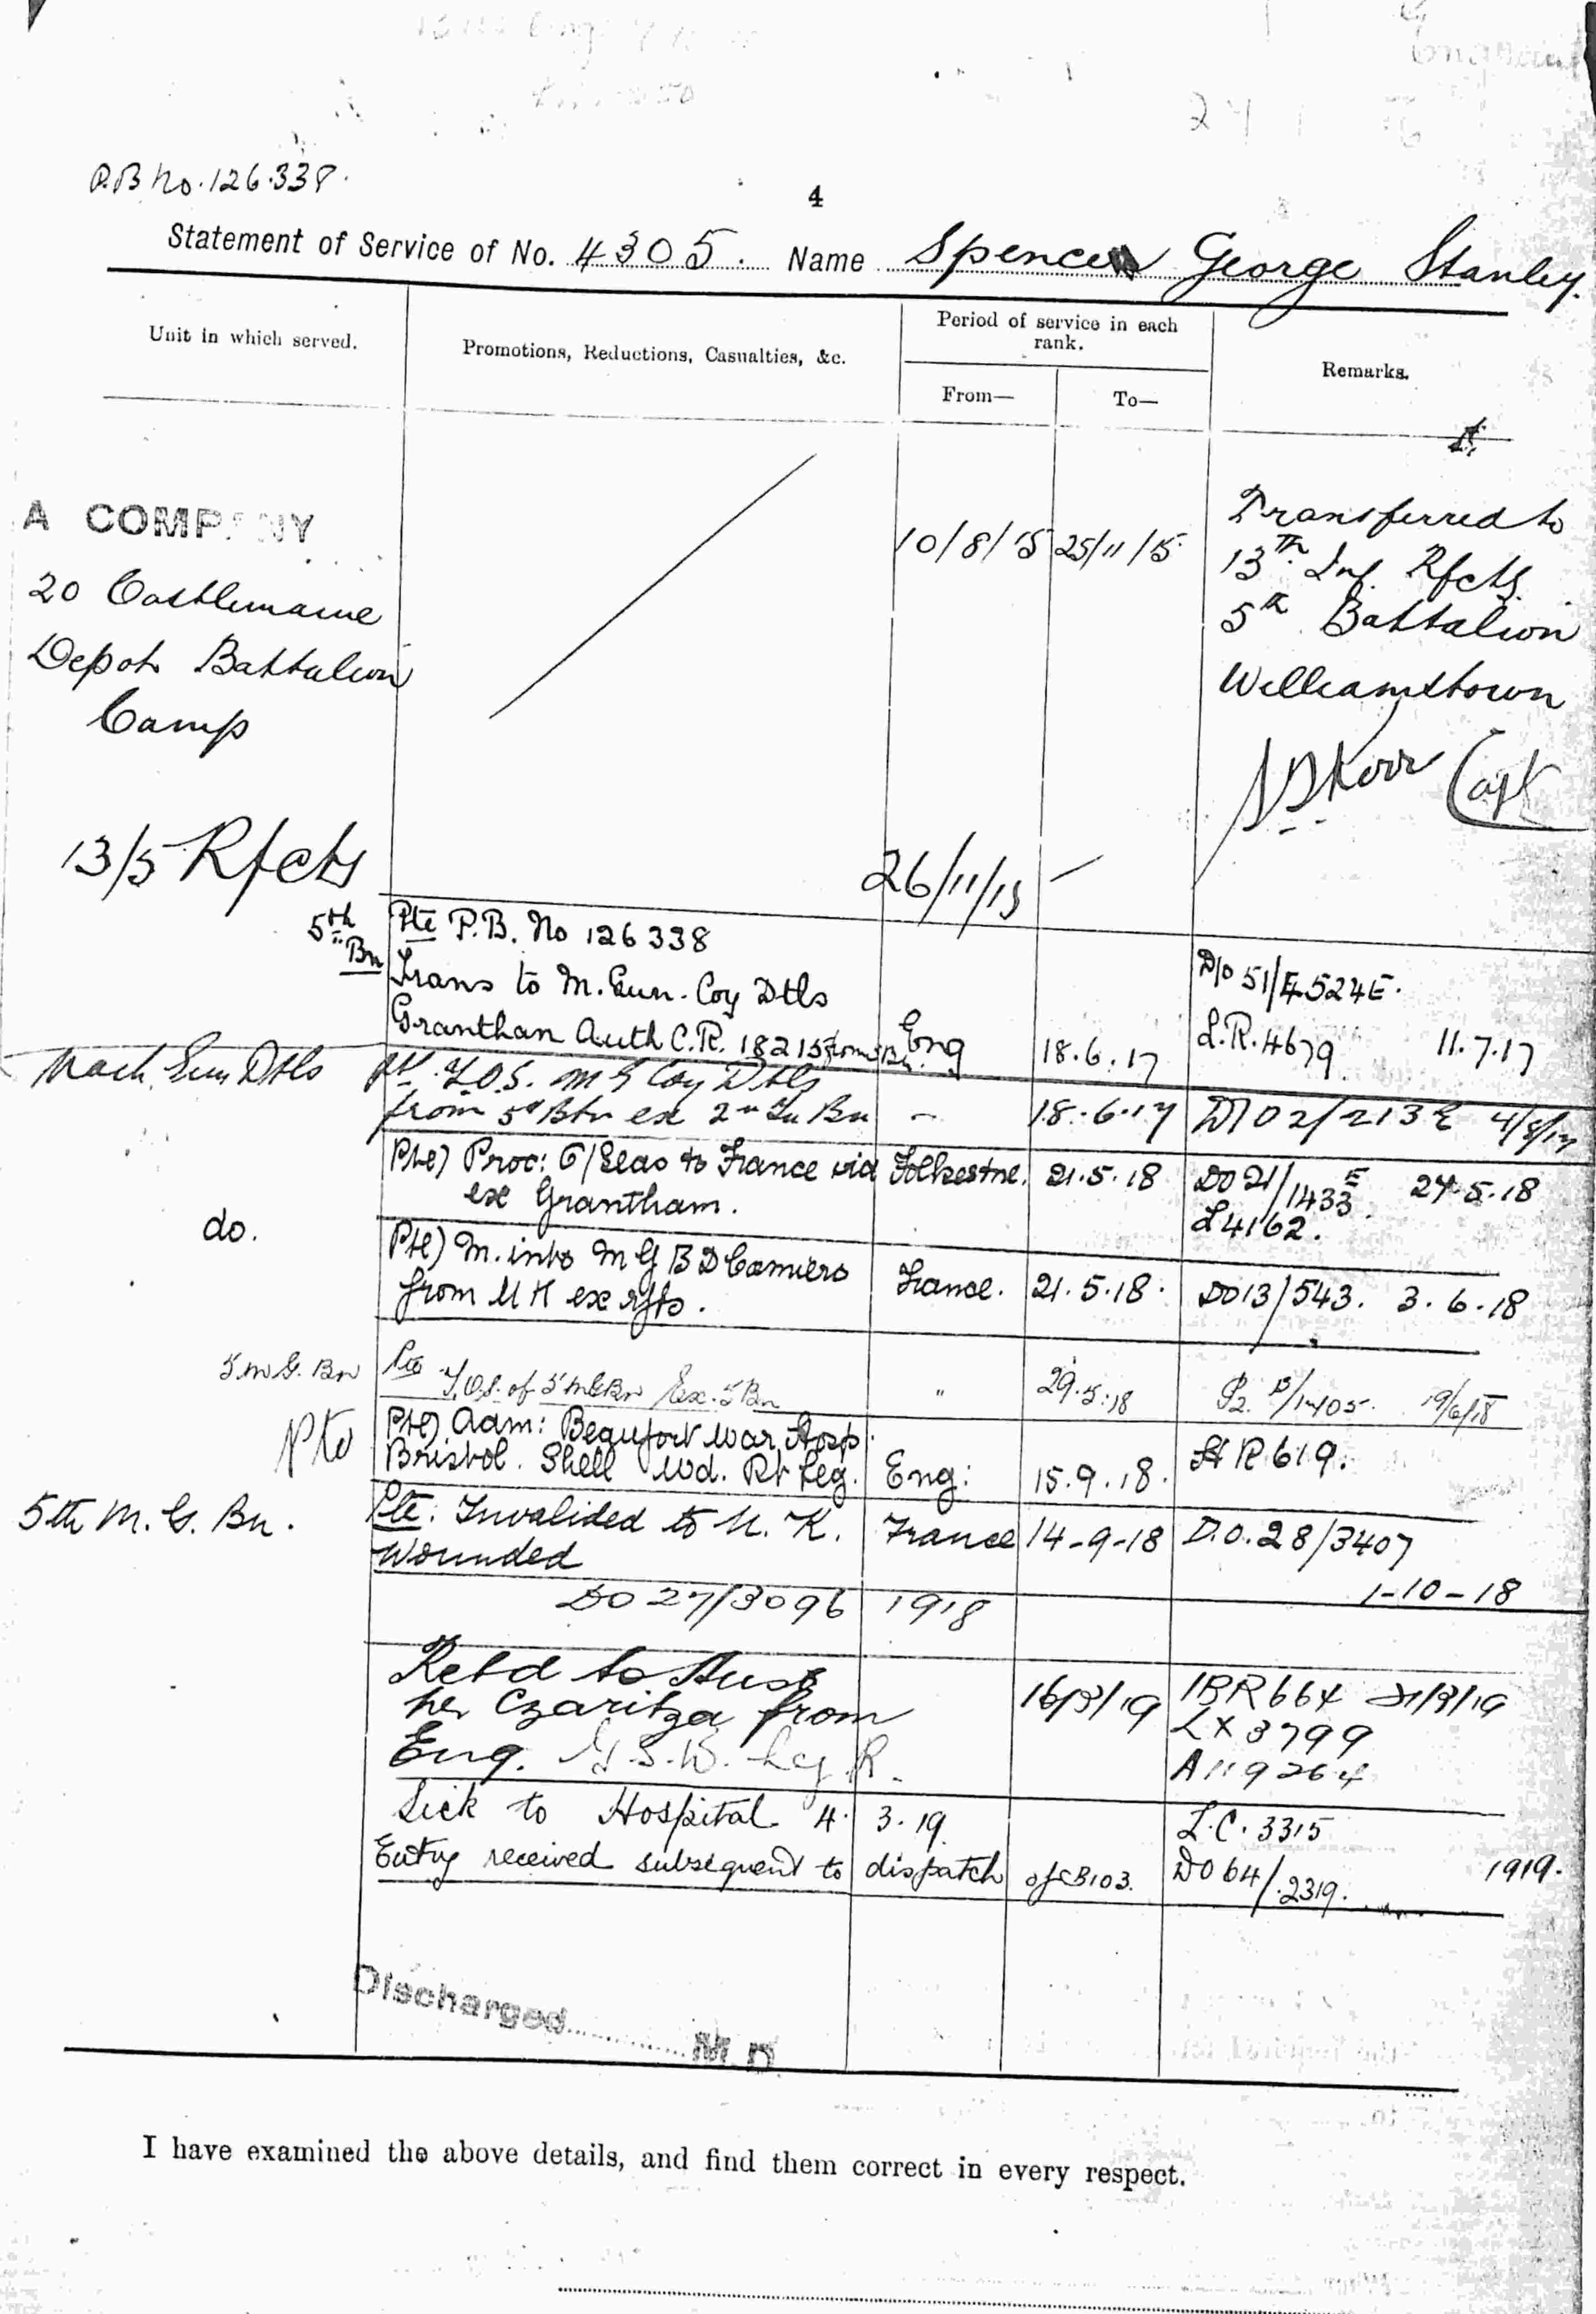 P.B No. 126.338.
4
Statement of Service of No. 4305. Name Spencer George Stanley.
Unit in which served.
Promotions, Reductions, Casualties, &c.
Period of service in each
rank.
From—
To—
Remarks.
A COMPANY
20 Castlemaine
Depot Battalion
Camp
10/8/15
25/11/15
Transferred to
13th Inf. Rfcts.
5th Battalion
Williamstown
Kerr Capt
13/5 Rfcts
26/11/15
5th Bn
Pte P.B. No 126338
Trans to M. Gun. Coy Dtls
Granthan Auth C.R. 18215 from 5 Bn.
Eng
18.6.17
D/O 51/E524E.
L.R. 4679 11.7.17
Mach. Gun Dtls
Pte T.O.S. M G Coy Dtls
from 5th Btn ex 2nd Tn Bn
–
18.6.17
DO 2/213E
Pte) Proc: O/Seas to France via Folkestne.
ex Grantham.
21.5.18
DO 21/1433E. 24.5.18
L4162.
do.
Pte) M. into M G B D Camiers
from U K ex rfts.
France.
21.5.18.
DO13/543. 3.6.18
5 M G. Bn
Pte T.O.S. of 5 MGBn Ex. 5 Bn
"
29.5.18
19/6/18
Pte) Adm: Beaufort War Hosp.
Bristol. Shell Wd. Rt Leg.
Eng:
15.9.18.
H R 619.
5th M. G. Bn.
Pte: Invalided to U. K.
Wounded
France
14-9-18
D.O. 28/3407
1-10-18
DO 27/3096 1918
Retd to Aust
per Czaritza from
Eng. G.S.W. Leg R.
16/3/19
IRR 664
LX 3799
A119264
Sick to Hospital 4.3.19.
L.C. 3315
Entry received subsequent to dispatch of B103.
DO 64/2319. 1919.
Discharged............M D
I have examined the above details, and find them correct in every respect.